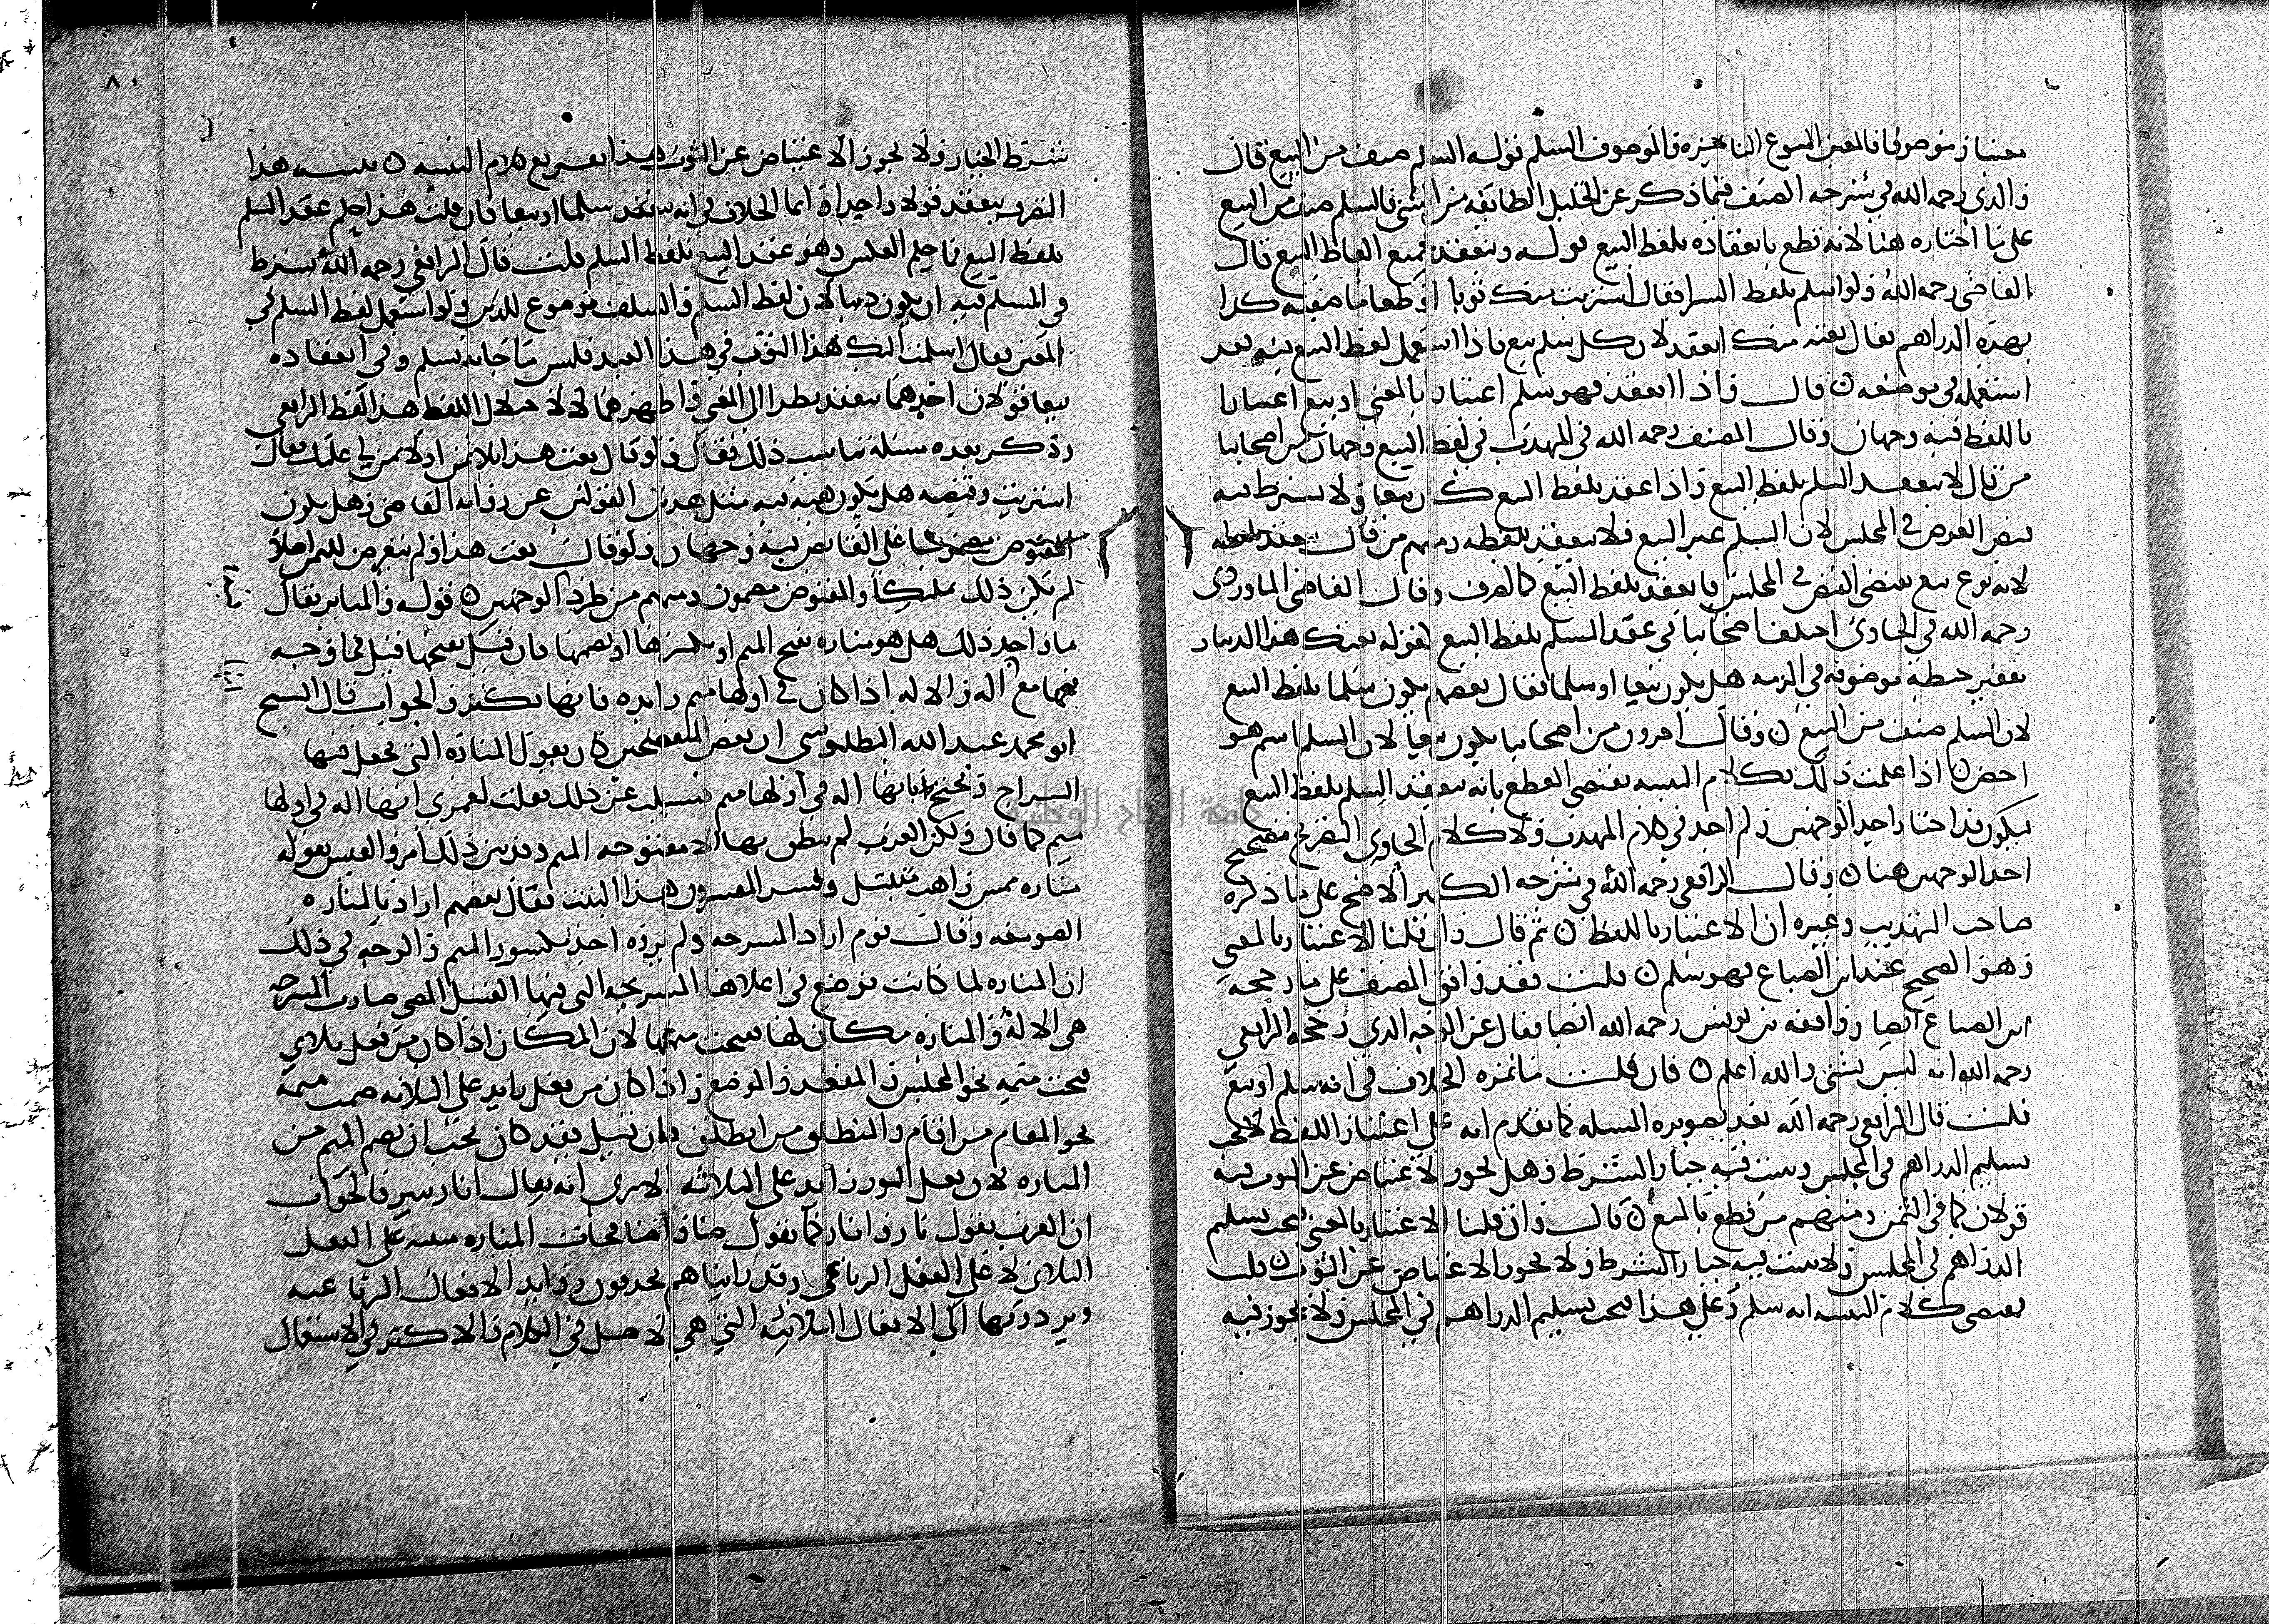 والدي رحمه الله في شرحه المصنف فيما ذكر عن الخليل الطايفة من الشي فالسلم صنف من البيع
على ما اختاره هنا لانه قطع بانعقاده بلفظ البيع قوله وينعقد بجميع الفاظ البيع قال
القاضي رحمه الله ولو اسلم بلفظ الشرا فقال اشتريت منك ثوبا او طعاما صفته كذا
بهذه الدراهم فقال بعته منك انعقد لان كل سلم بيع فاذا استعمل لفظ البيع فيه فقد
استعمله في موضعه قال واذا انعقد فهو سلم اعتبارا بالمعنى او بيع اعتبارا
باللفظ فيه وجهان وقال المصنف رحمه الله في المهذب في لفظ البيع وجهان من اصحابنا
من قال لا ينعقد السلم بلفظ البيع واذا عقد بلفظ البيع كان بيعا ولا يشترط فيه
قبض العوض في المجلس لان السلم غير البيع فلا ينعقد بلفظه ومنهم من قال ينعقد بلفظه
لانه نوع بيع يقتضي القبض في المجلس فانعقد بلفظ البيع كالصرف وقال القاضي الماوردي
رحمه الله في الحاوي اختلف اصحابنا في عقد السلم بلفظ البيع كقوله بعتك هذا الدينار
بقفيز حنطة موصوفة في الذمة هل يكون بيعا او سلما فقال بعضهم يكون سلما بلفظ البيع
لان السلم صنف من البيع وقال اخرون من اصحابنا يكون بيعا لان السلم اسم هو
اخص اذا علمت ذلك فكلام التنبيه يقتضي القطع بانه ينعقد السلم بلفظ البيع
فيكون قد اختار احد الوجهين ولم اجد في كلام المهذب ولا كلام الحاوي التصريح بتصحيح
احد الوجهين هنا وقال الرافعي رحمه الله في شرحه الكبير الاصح على ما ذكره
صاحب التهذيب وغيره ان الاعتبار باللفظ ثم قال وان قلنا الاعتبار بالمعنى
وهو الصحيح عند ابن الصباغ فهو سلم قلت فقد وافق المصنف على ما رجحه
ابن الصباغ ايضا ووافقه بن يونس رحمه الله ايضا فقال عن الوجه الذي رجحه الرافعي
رحمه الله انه ليس بشي والله اعلم فان قلت ما ثمرة الخلاف في انه سلم او بيع
قلت قال الرافعي رحمه الله بعد تصويره المسلة كما تقدم انه على اعتبار اللفظ لا يجب
تسليم الدراهم في المجلس ويثبت فيه خيار الشرط وهل يجوز الاعتياض عن الثوب فيه
قولان كما في الثمن ومنهم من قطع بالمنع قال وان قلنا الاعتبار بالمعنى يجب تسليم
الدراهم في المجلس ولا يثبت فيه خيار الشرط ولا يجوز الاعتياض عن الثوب قلت
يقتضي كلام التنبيه انه سلم وعلى هذا يجب تسليم الدراهم في المجلس ولا يجوز فيه
٨٠
شرط الخيار ولا يجوز الاعتياض عن الثوب هذا تفريع كلام التنبيه تنبيه هذا
التصرف ينعقد قولا واحدا انما الخلاف في انه ينعقد سلما او بيعا فان قلت هذا حكم عقد السلم
بلفظ البيع فما حكم العكس وهو عقد البيع بلفظ السلم قلت قال الرافعي رحمه الله يشترط
في المسلم فيه ان يكون دينا لان لفظ السلم والسلف موضوع للدين ولو استعمل لفظ السلم في
المعين فقال اسلمت اليك هذا الثوب في هذا العبد فليس ما جا به بسلم وفي انعقاده
بيعا قولان احدهما ينعقد نظرا الى المعنى واظهرهما لا لاختلال اللفظ هذا لفظ الرافعي
وذكر بعده مسئلة تناسب ذلك فقال ولو قال بعت هذا بلا ثمن او لا ثمن لي عليك فقال
اشتريت وقبضه هل يكون هبة فيه مثل هذين القولين عن رواية القاضي وهل يكون
المقبوض مضمونا على القابض فيه وجهان ولو قال بعت هذا ولم يتعرض للثمن اصلا
لم يكن ذلك تمليكا والمقبوض مضمون ومنهم من طرد الوجهين قوله والمناير يقال
ما واحد ذلك هل هو منارة بفتح الميم او بكسرها او بضمها فان قيل بفتحها قيل فما وجه
فتحها مع اله والاله اذا كان في اولها ميم زايدة فانها تكسر والجواب قال الشيخ
ابو محمد عبد الله البطليوسي ان بعض كان يقول المنارة التي يجعل فيها
السراج ويحتج بانها اله في اولها ميم فسيلت عن ذلك فقلت لعمري انها اله في اولها
ميم كما قال ولكن العرب لم ينطق بها الا مفتوحه الميم وقد بين ذلك امرؤ القيس بقوله
منارة ممسى راهب متبتل وفسر المفسرون هذا البيت فقال بعضهم اراد بالمنارة
الصومعه وقال قوم اراد المسرجه ولم يروه احد بكسر الميم والوجه في ذلك
ان المنارة لما كانت توضع في اعلاها المسرجه التي فيها الفتيل المضي صارت المسرجه
هي الالة والمنارة مكان لها ففتحت ميمها لان المكان اذا كان من فعل ثلاثي
فتحت ميمه نحو المجلس والمقعد والموضع واذا كان من فعل زايد على الثلاثه ضمت ميمه
نحو المقام من اقام والمنطلق من انطلق فان قيل فقد كان يجب ان تضم الميم من
المنارة لان فعل النور زايد على الثلاثة الا ترى انه يقال انار ينير فالجواب
ان العرب تقول نار وانار كما تقول ضا واضا فجات المنارة مبنيه على الفعل
الثلاثي لا على الفعل الرباعي وقد رايناهم يحذفون زوايد الافعال الرباعيه
ويردونها الى الافعال الثلاثيه التي هي الاصل في الكلام والاكثر في الاستعمال
جامعة النجاح الوطنية